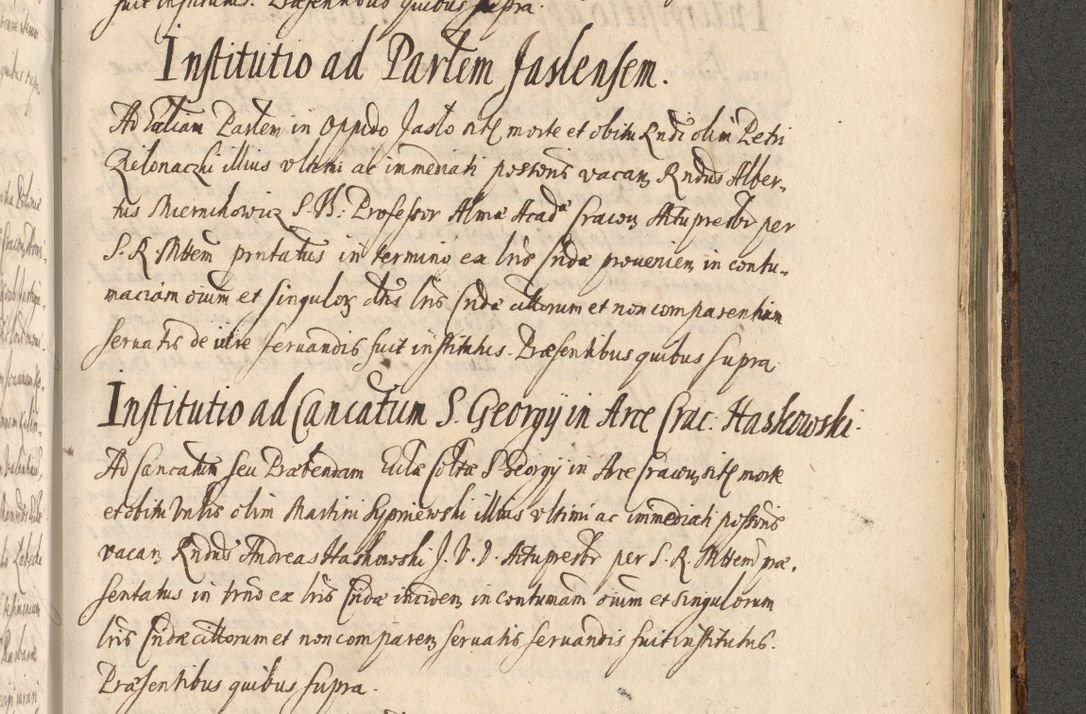 fuit institutus. Præsentibus quibus supra.
Institutio ad Partem Jaslensem.
Ad Ecaliam Partem in Oppido Jaslo sitt morte et obitu Rndi olim Petri
Zielonaczki illius vltimi ac immediati possoris vacan Rndus Alber-
tus Miernikowicz S. Th: Professor Almæ Acad Cracovi Actu presbr per
S. R. Mttem prntatus in termino ex lris Cridæ provenien in contu-
maciam oium et singulor dtis lris Cridæ cittorum et non comparentium
servatis de iure servandis fuit institutus. Præsentibus quibus supra.
Institutio ad Cancatum S. Georgij in Arce Crac. Haskowski.
Ad Cancatum seu Præbendam Eccliæ Colltæ S Georgij in Arce Cracovi sitt morte
et obitu Vnblis olim Martini Sypniewski illius vltimi ac immediati possoris
vacan Rndus Andreas Haskowski J. V. D. Actu presbr per S. R. Mttem præ-
sentatus in trno ex lris Cridæ inciden in contumam oium et singulorum
lris Cridæ cittorum et non comparen servatis servandis fuit institutus.
Præsentibus quibus supra.